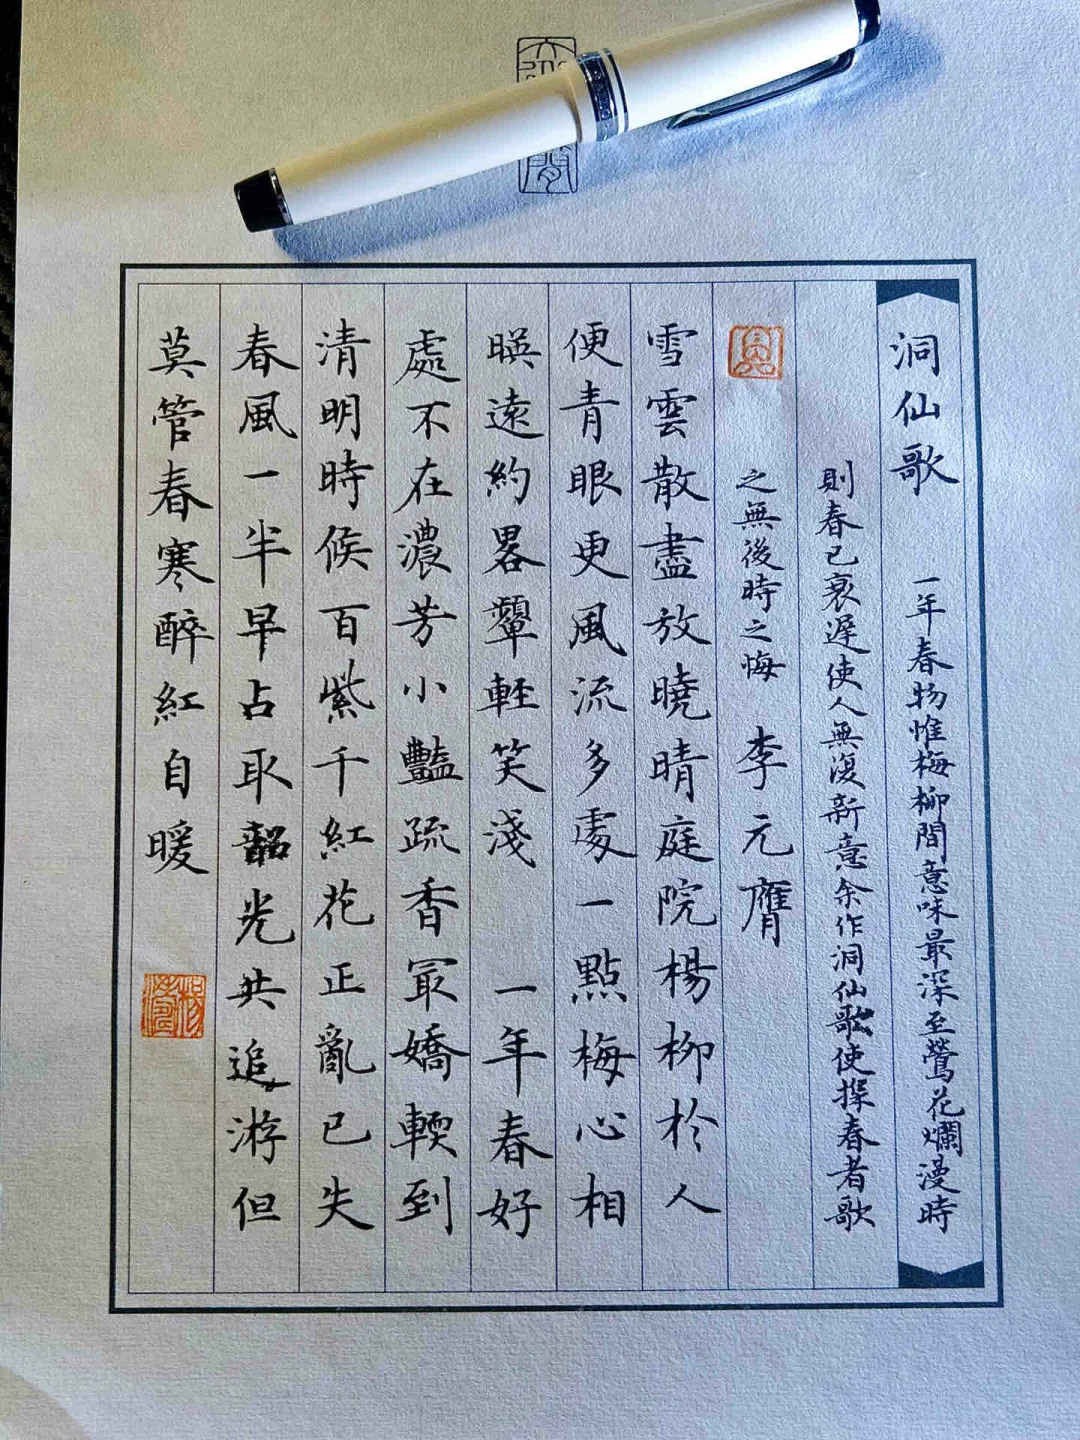 洞仙歌 一年春物惟梅柳間意味最深至鶯花爛漫時
則春已衰遲使人無復新意余作洞仙歌使探春者歌
之無後時之悔 李元膺
雪雲散盡放曉晴庭院楊柳於人
便青眼更風流多處一點梅心相
暎遠約畧顰輕笑淺 一年春好
處不在濃芳小豔疏香冣嬌輭到
清明時候百紫千紅花正亂已失
春風一半早占取韶光共追游但
莫管春寒醉紅自暖